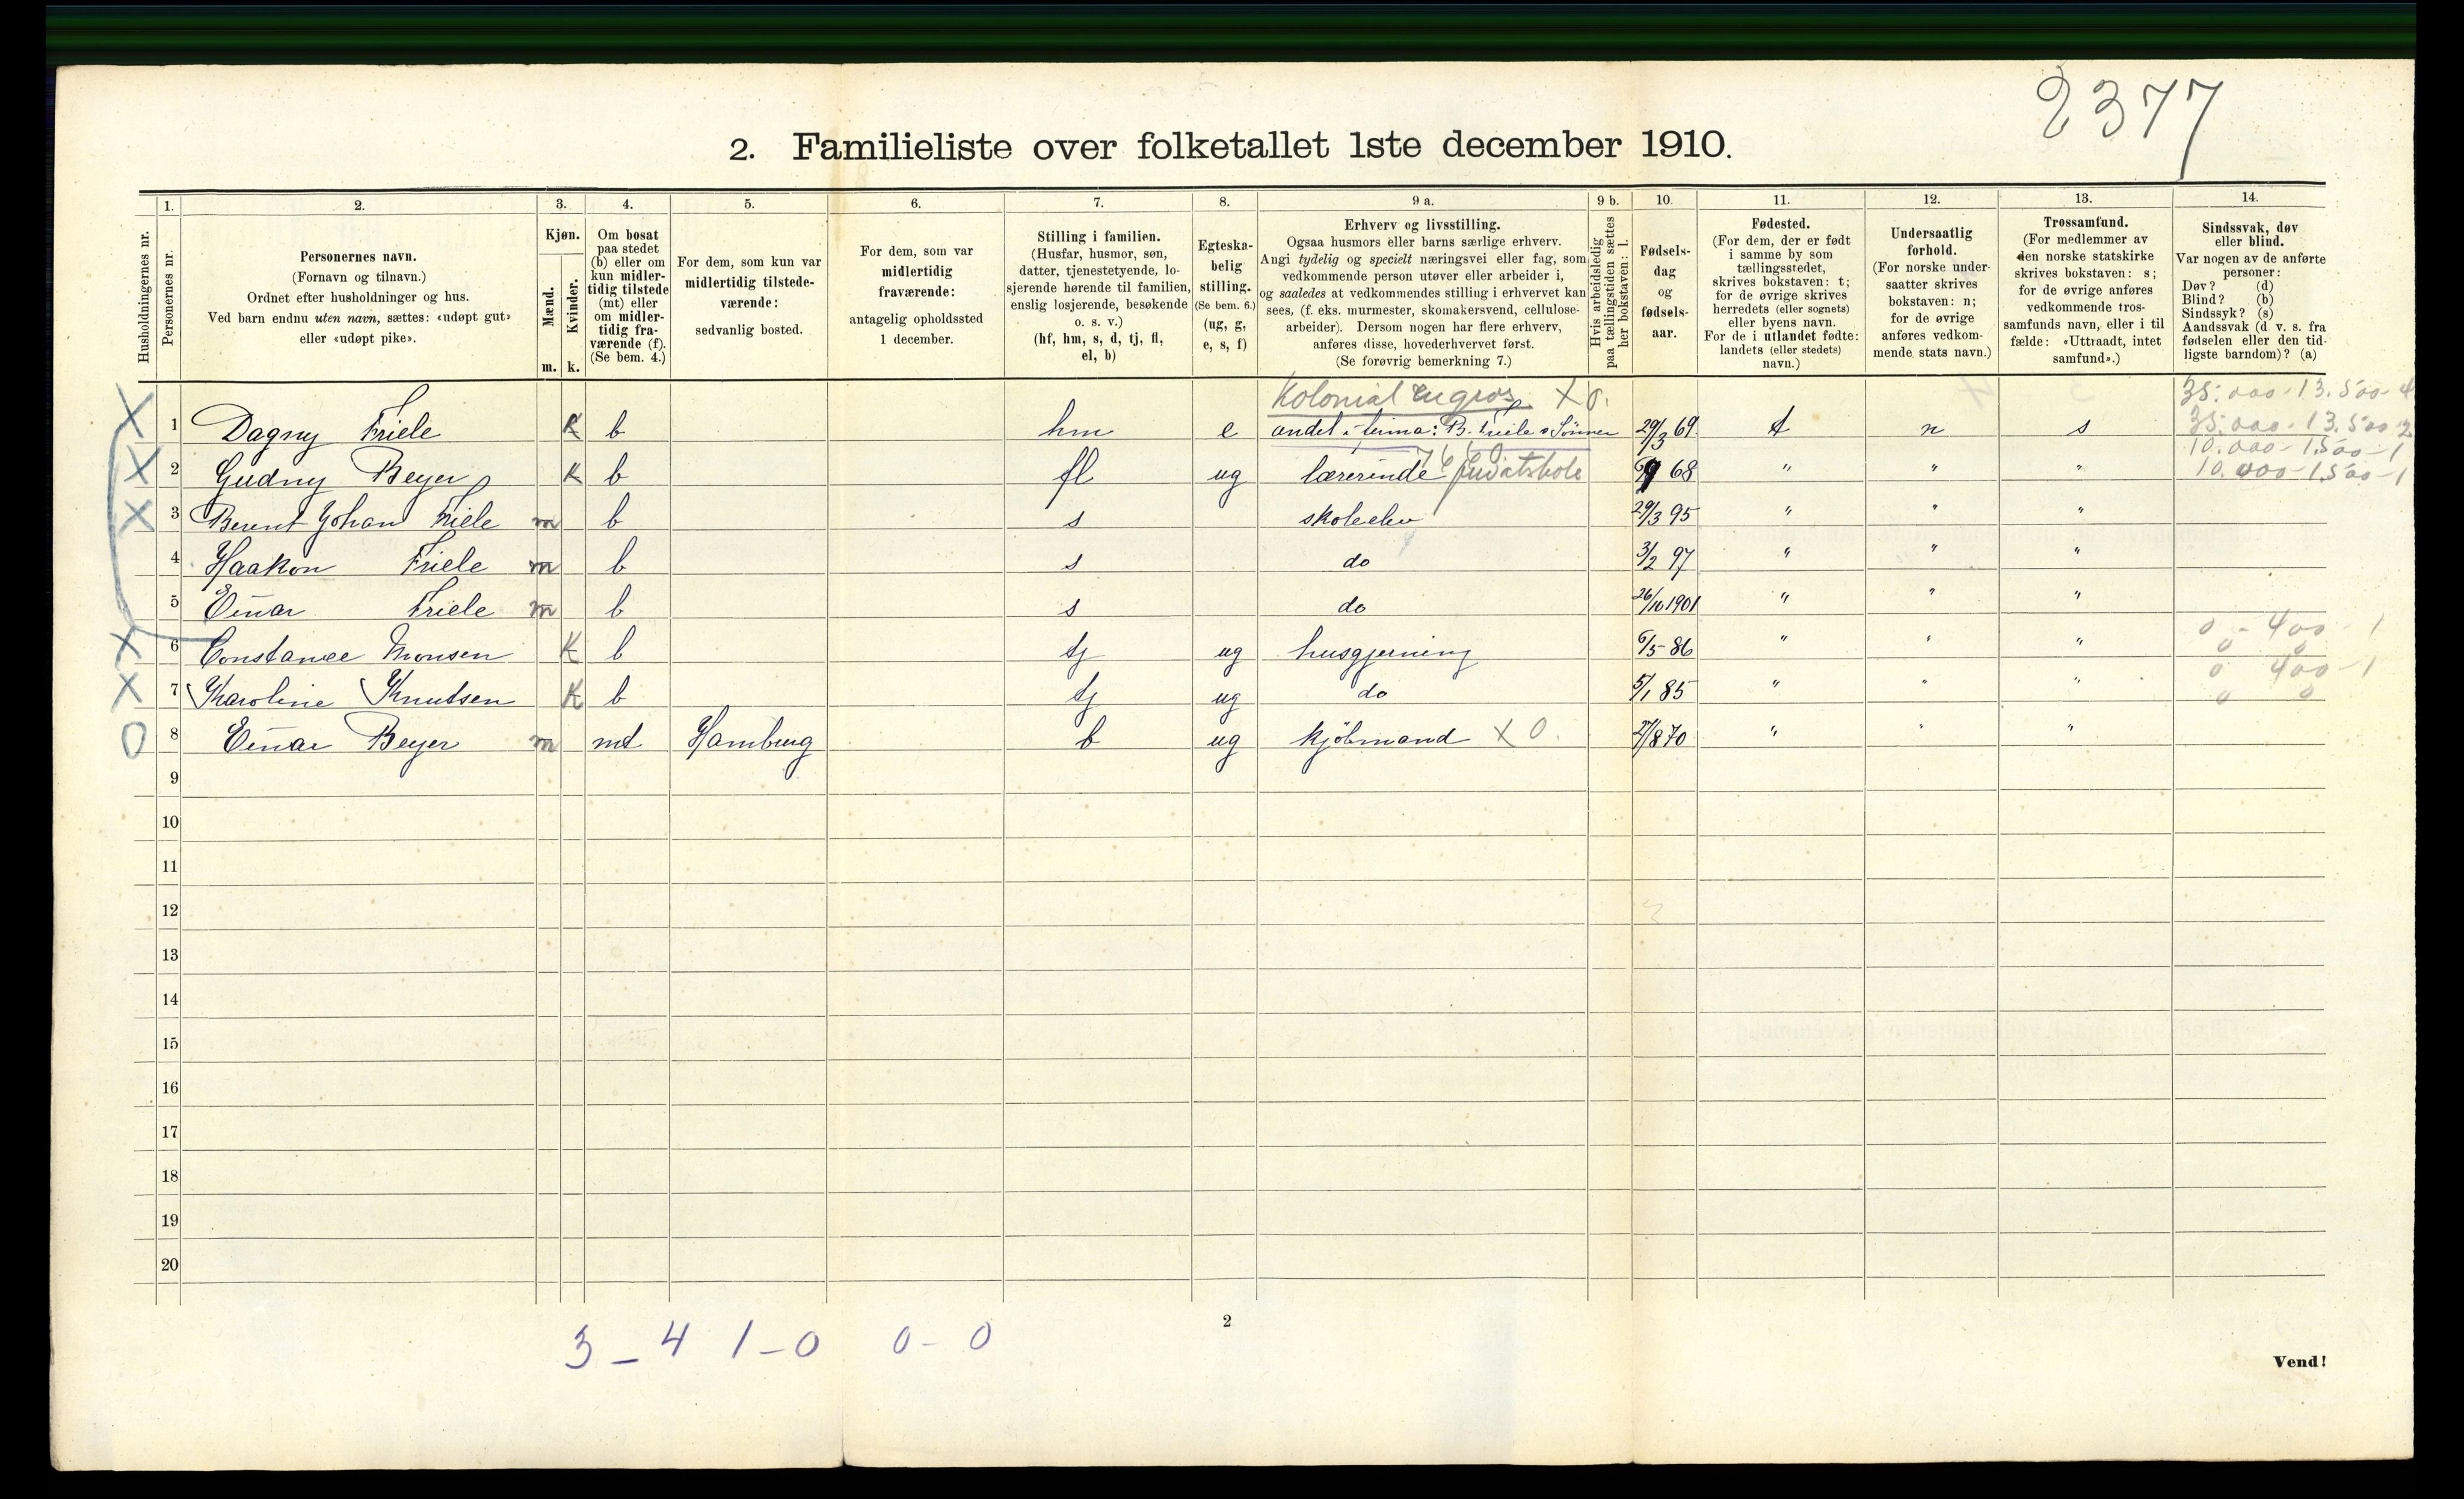 2377
2. Familieliste over folketallet 1ste december 1910.
Husholdningernes nr.
1. Personernes nr.
2. Personernes navn.
(Fornavn og tilnavn.)
Ordnet efter husholdninger og hus.
Ved barn endnu uten navn, sættes: «udøpt gut»
eller «udøpt pike».
3. Kjøn.
Mænd. Kvinder.
m. k.
4. Om bosat
paa stedet
(b) eller om
kun midler-
tidig tilstede
(mt) eller
om midler-
tidig fra-
værende (f).
(Se bem. 4.)
5. For dem, som kun var
midlertidig tilstede-
værende:
sedvanlig bosted.
6. For dem, som var
midlertidig
fraværende:
antagelig opholdssted
1 december.
7. Stilling i familien.
(Husfar, husmor, søn,
datter, tjenestetyende, lo-
sjerende hørende til familien,
enslig losjerende, besøkende
o. s. v.)
(hf, hm, s, d, tj, fl,
el, b)
8. Egteska-
belig
stilling.
(Se bem. 6.)
(ug, g,
e, s, f)
9 a. Erhverv og livsstilling.
Ogsaa husmors eller barns særlige erhverv.
Angi tydelig og specielt næringsvei eller fag, som
vedkommende person utøver eller arbeider i,
og saaledes at vedkommendes stilling i erhvervet kan
sees, (f. eks. murmester, skomakersvend, cellulose-
arbeider). Dersom nogen har flere erhverv,
anføres disse, hovederhvervet først.
(Se forøvrig bemerkning 7.)
9 b. Hvis arbeidsledig
paa tællingstiden sættes
her bokstaven: l.
10. Fødsels-
dag
og
fødsels-
aar.
11. Fødested.
(For dem, der er født
i samme by som
tællingsstedet,
skrives bokstaven: t;
for de øvrige skrives
herredets (eller sognets)
eller byens navn.
For de i utlandet fødte:
landets (eller stedets)
navn.)
12. Undersaatlig
forhold.
(For norske under-
saatter skrives
bokstaven: n;
for de øvrige
anføres vedkom-
mende stats navn.)
13. Trossamfund.
(For medlemmer av
den norske statskirke
skrives bokstaven: s;
for de øvrige anføres
vedkommende tros-
samfunds navn, eller i til
fælde: «Uttraadt, intet
samfund».)
14. Sindssvak, døv
eller blind.
Var nogen av de anførte
personer:
Døv? (d)
Blind? (b)
Sindssyk? (s)
Aandssvak (d. v. s. fra
fødselen eller den tid-
ligste barndom)? (a)
Kolonial engros X 0. 35.000-13.500-4
X 1 Dagny Friele K b hm e andel i firma: B. Friele & Sønner 29/3 69 t n s 35.000-13.500-2
10.000-1.500-1
X 2 Gudny Beyer K b fl ug lærerinde privatskole 68 " " " 10.000-1.500-1
X 3 Berent Johan Friele m b s skoleelev 29/3 95 " " "
4 Haakon Friele m b s do 3/2 97 " " "
5 Einar Friele m b s do 26/10 1901 " " "
0 - 400 - 1
X 6 Constance Monsen K b tj ug husgjerning 6/5 86 " " " 0 0
0 400-1
X 7 Karoline Knutsen K b tj ug do 5/1 85 " " " 0 0
O 8 Einar Beyer m mt Hamburg b ug kjøbmand X 0. 27/8 70 " " "
9
10
11
12
13
14
15
16
17
18
19
20
2
3 - 4 1 - 0 0 - 0
Vend!